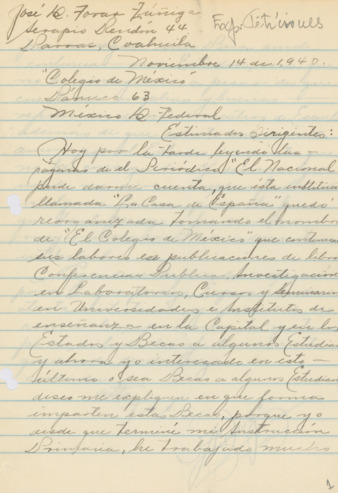 José D. Foraz Zúñiga
Serapio Rendón 44
Parras, Coahuila
Exp. Peticiones
Noviembre 14 de 1940.
"Colegio de México"
Pánuco 63
México D. Federal
Estimados Dirigentes:
Hoy por la tarde leyendo las
páginas de el Periódico "El Nacional
pude darme cuenta, que ésta institución
llamada "La Casa de España" quedó
reorganizada tomando el nombre
de "El Colegio de México" que continua
sus labores en publicaciones de libros
Conferencias Públicas, Investigaciones
en Laboratorios, Cursos y Seminarios
en Universidades e Institutos de
enseñanza en la Capital y en los
Estados y Becas a algunos Estudian
y ahora yo interesado en este
último o sea Becas a algunos Estudian
deseo me expliquen en que forma
imparten estas Becas, porque yo
desde que terminé mi Instrucción
Primaria, he trabajado mucho
1